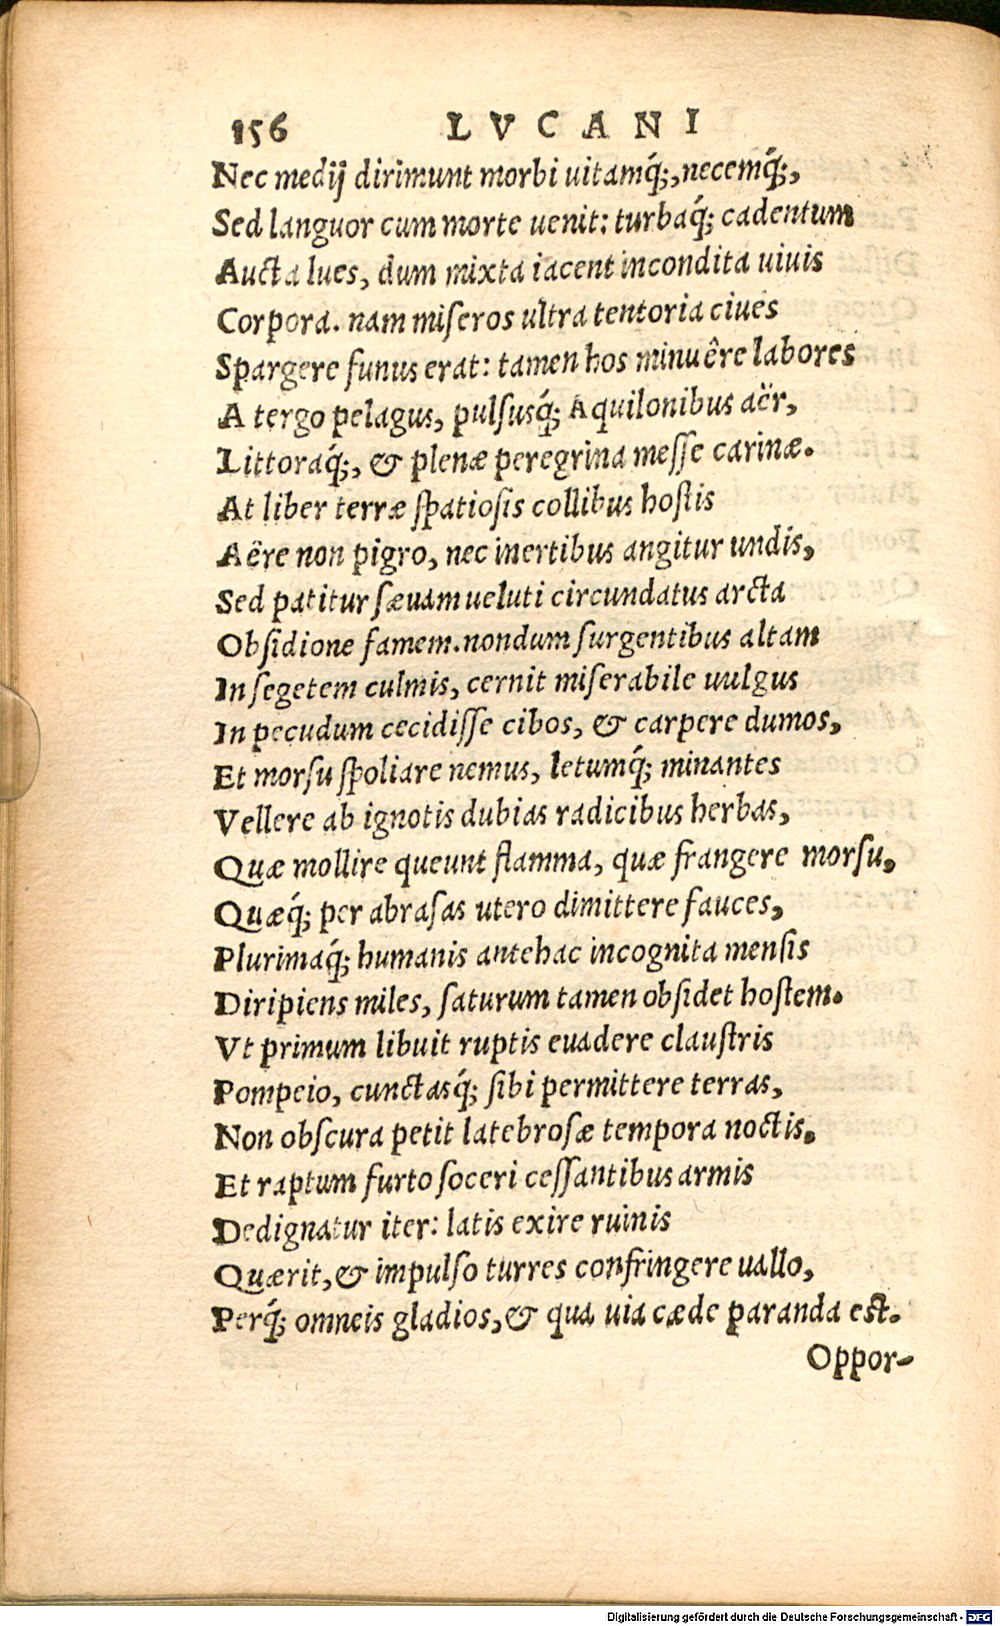 156 LVCANI
Nec medij dirimunt morbi uitamq́;, necemq́;,
Sed languor cum morte uenit: turbaq́; cadentum
Aucta lues, dum mixta iacent incondita uiuis
Corpora. nam miseros ultra tentoria ciues
Spargere funus erat: tamen hos minuêre labores
A tergo pelagus, pulsusq́; Aquilonibus aër,
Littoraq́;, & plenæ peregrina messe carinæ.
At liber terræ spatiosis collibus hostis
Aëre non pigro, nec inertibus angitur undis,
Sed patitur sæuam ueluti circundatus arcta
Obsidione famem. nondum surgentibus altam
In segetem culmis, cernit miserabile uulgus
In pecudum cecidisse cibos, & carpere dumos,
Et morsu spoliare nemus, letumq́; minantes
Vellere ab ignotis dubias radicibus herbas,
Quæ mollire queunt flamma, quæ frangere morsu,
Quæq́; per abrasas utero dimittere fauces,
Plurimaq́; humanis antehac incognita mensis
Diripiens miles, saturum tamen obsidet hostem.
Vt primum libuit ruptis euadere claustris
Pompeio, cunctasq́; sibi permittere terras,
Non obscura petit latebrosæ tempora noctis,
Et raptum furto soceri cessantibus armis
Dedignatur iter: latis exire ruinis
Quærit, & impulso turres confringere uallo,
Perq́; omneis gladios, & qua uia cæde paranda est.
Oppor-
Digitalisierung gefördert durch die Deutsche Forschungsgemeinschaft - DFG